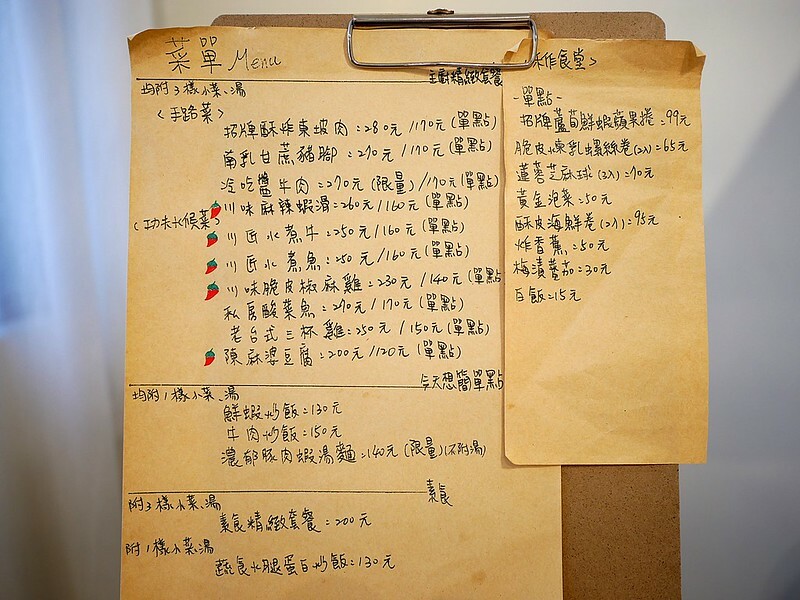 菜單 Menu
主廚精緻套餐
均附3樣小菜、湯
<手路菜>
招牌酥炸東坡肉:280元/170元(單點)
南乳甘蔗豬腳:270元/170元(單點)
冷吃醬牛肉:270元(限量)/170元(單點)
<功夫火候菜>
川味麻辣蝦滑:260元/160元(單點)
川匠水煮牛:250元/160元(單點)
川匠水煮魚:250元/160元(單點)
川味脆皮椒麻雞:230元/140元(單點)
私房酸菜魚:270元/170元(單點)
老台式三杯雞:250元/150元(單點)
陳麻婆豆腐:200元/120元(單點)
今天想簡單點
均附1樣小菜、湯
鮮蝦炒飯:130元
牛肉炒飯:150元
濃郁豚肉蝦湯麵:140元(限量)(不附湯)
素食
附3樣小菜、湯
素食精緻套餐:200元
附1樣小菜、湯
蔬食火腿蛋白炒飯:130元
作食堂>
-單點-
招牌蘆荀鮮蝦蘋果捲:99元
脆皮煉乳螺絲卷(2入):65元
蓮蓉芝麻球(3入):70元
黃金泡菜:50元
酥皮海鮮卷(2入):95元
炸香蕉:50元
梅漬蕃茄:30元
白飯:15元